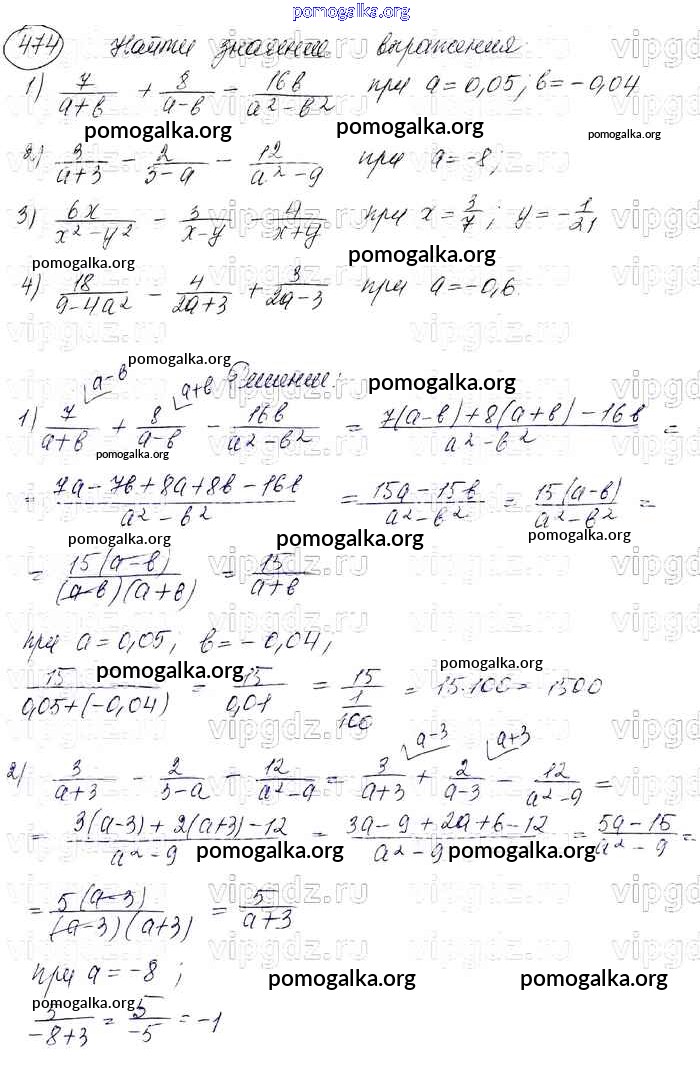 pomogalka.org
474 Найти значение выражения
1) 7/(a+b) + 8/(a-b) - 16b/(a²-b²) при a=0,05; b=-0,04
pomogalka.org pomogalka.org pomogalka.org
2) 3/(a+3) - 2/(3-a) - 12/(a²-9) при a=-8;
3) 6x/(x²-y²) - 3/(x-y) - 4/(x+y) при x=3/7; y=-1/21
pomogalka.org pomogalka.org
4) 18/(9-4a²) - 4/(2a+3) + 3/(2a-3) при a=-0,6.
vipgdz.ru
pomogalka.org Решение:
a-b a+b pomogalka.org
1) 7/(a+b) + 8/(a-b) - 16b/(a²-b²) = (7(a-b)+8(a+b)-16b)/(a²-b²) =
pomogalka.org
= (7a-7b+8a+8b-16b)/(a²-b²) = (15a-15b)/(a²-b²) = 15(a-b)/(a²-b²) =
pomogalka.org pomogalka.org pomogalka.org
= 15(a-b)/((a-b)(a+b)) = 15/(a+b)
при a=0,05; b=-0,04;
pomogalka.org pomogalka.org
15/(0,05+(-0,04)) = 15/0,01 = 15/(1/100) = 15·100= 1500
a-3 a+3
2) 3/(a+3) - 2/(3-a) - 12/(a²-9) = 3/(a+3) + 2/(a-3) - 12/(a²-9) =
= (3(a-3)+2(a+3)-12)/(a²-9) = (3a-9+2a+6-12)/(a²-9) = (5a-15)/(a²-9) =
pomogalka.org pomogalka.org
= 5(a-3)/((a-3)(a+3)) = 5/(a+3)
при a=-8;
pomogalka.org pomogalka.org pomogalka.org
5/(-8+3) = 5/(-5) = -1